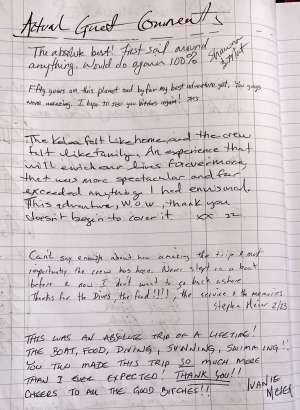 Actual Guest Comments
The absolute best! First sail around
anything. Would do again 100%
Shawna
Fifty years on this planet and by far my best adventure yet. You guys
were amazing. I hope to see you bitches again!
The Kalma felt like home, and the crew
felt like family. An experience that
will enrich our lives forevermore,
that was more spectacular and far
exceeded anything I had envisioned.
This adventure, WOW, thank you
doesn't begin to cover it. xx
Can't say enough about how amazing the trip & most
importantly the crew has been. Never slept on a boat
before & now I don't want to go back ashore.
Thanks for the Dives, the food!!!!, the service & the memories
Stephen 2/23
THIS WAS AN ABSOLUTE TRIP OF A LIFETIME!
THE BOAT, FOOD, DIVING, SUNNING, SWIMMING!!
YOU TWO MADE THIS TRIP SO MUCH MORE
THAN I EVER EXPECTED! THANK YOU!!
CHEERS TO ALL THE GOOD BITCHES!!